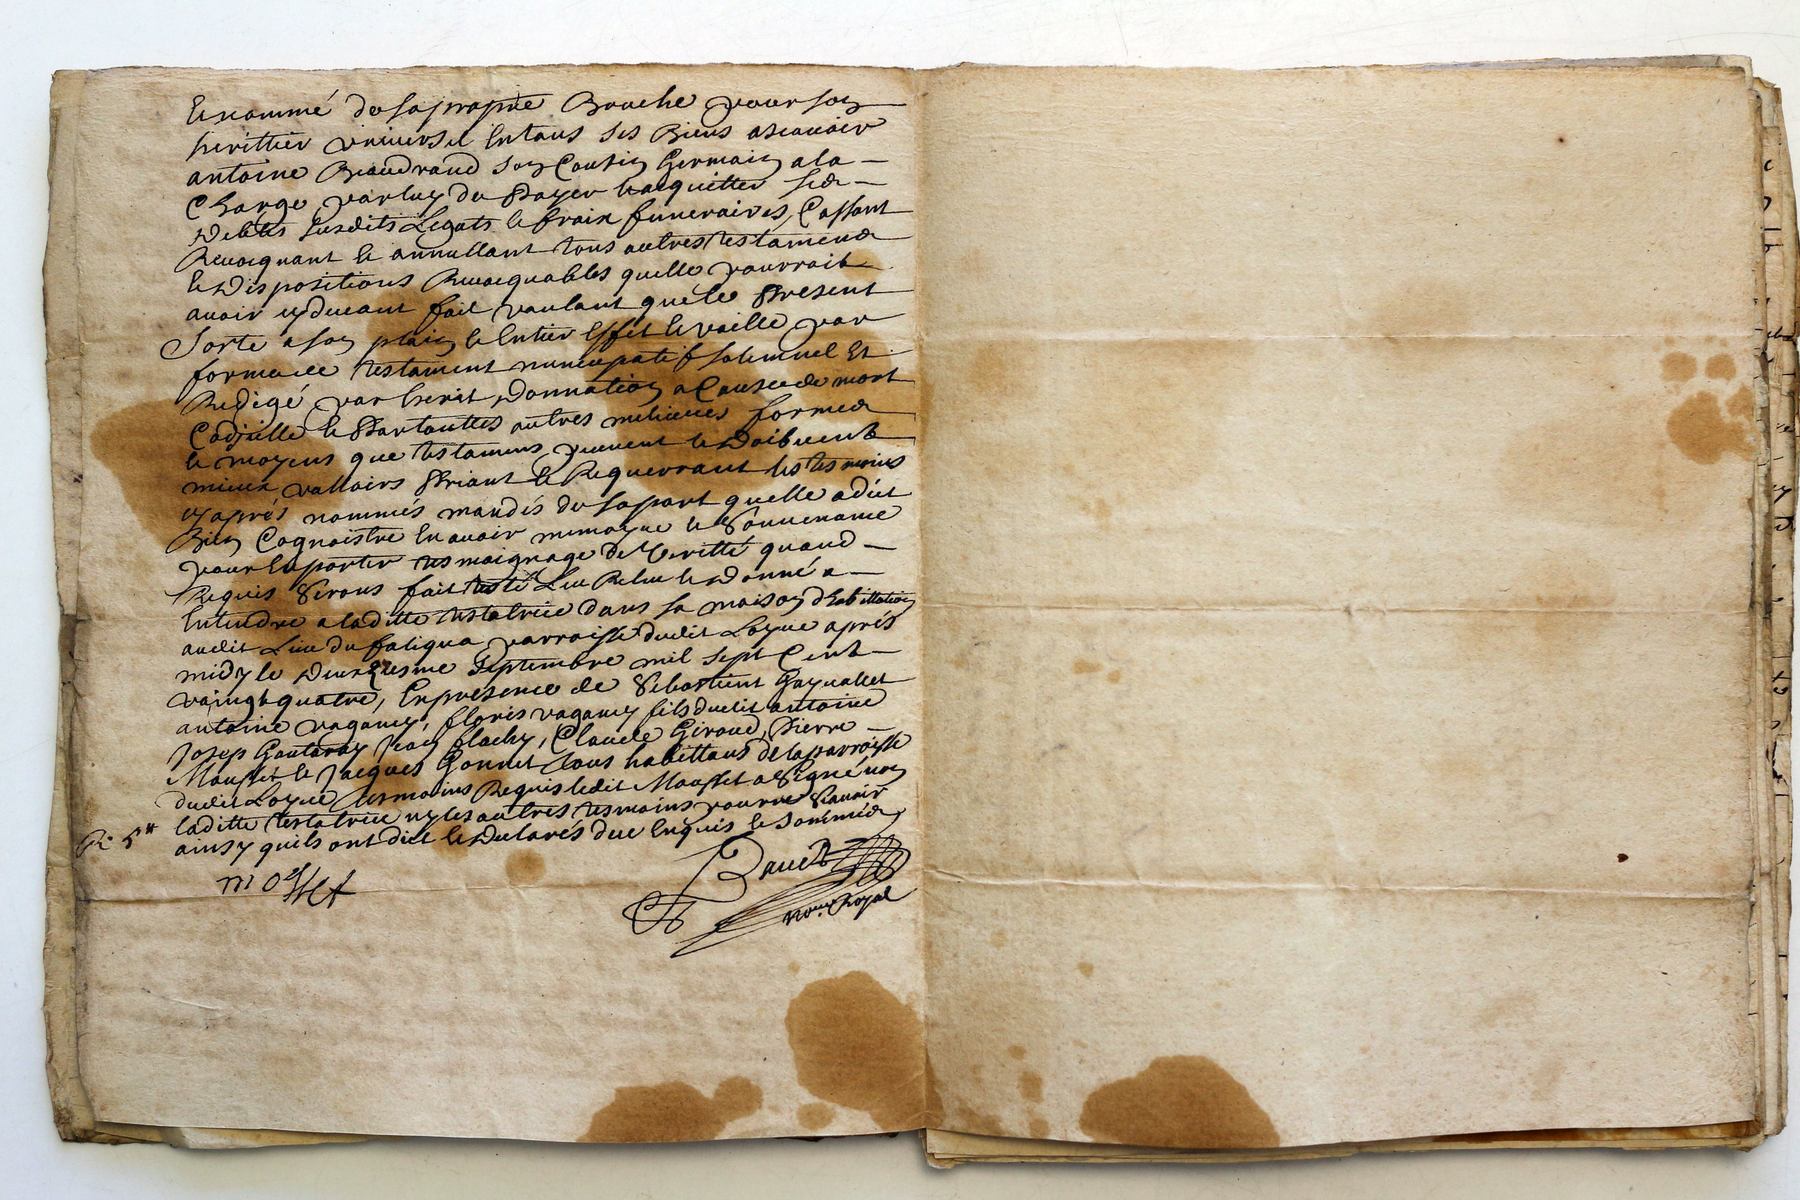 Et nommé de sa propre Bouche pour son
herittier universel En tous ses Biens ascavoir
antoine Beaudrand son Cousin Germain a la
Charge par luy de Payer Et acquitter ses
Debtes susdits Legats Et fraix funeraires, Cassant
Revocquant Et annullant tous autres testamens
Et Dispositions Revocquables quelle pourroit
avoir cy devant fait voulant que le Present
Sorte a son plain Et Entier Effet Et vaille par
forme de testament nuncupatif solemnel Et
Redigé par Escrit, Donnation a Cause de mort
Codicille Et Par touttes autres meilieures formes
Et moyens que testamens peuvent Et Doibvent
mieux valloirs Priant Et Requerrant les tesmoins
cy aprés nommés mandés de sa part quelle a dict
Bien Cognoistre En avoir memoyre Et Souvenance
pour En porter tesmoignage de Veritté quand
Requis Serons fait Leu Releu Et Donné a
Entendre a laditte testatrice dans sa maison d'habittation
audit Lieu du parroisse dudit Loyre aprés
midy le septembre mil sept Cent
vaingt quatre, En presence de Sebastient
antoine vaganey, floris vaganey fils dudit antoine
Josep Jean flachy, Claude Giroud, Pierre
Mousset Et Jacques Gonnet tous habittans de la parroisse
dudit Loyre tesmoins Requis ledit Mousset a Signé non
laditte testatrice ny les autres tesmoins pour ne Scavoir
ainsy quils ont dict Et Declarés de ce Enquis Et Sommés
mosset
Royal